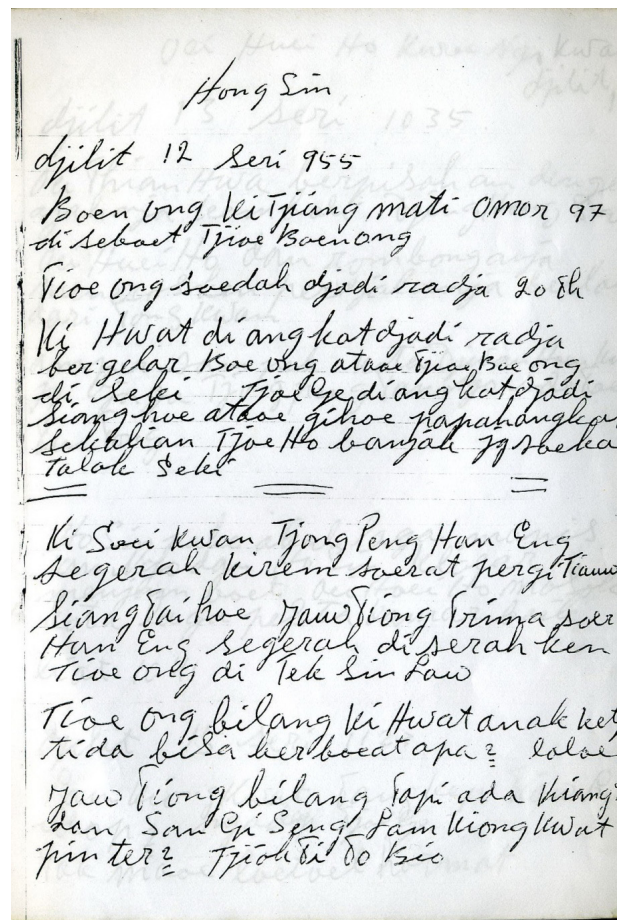 Hong Sin
djilit 12 Seri 955
Boen Ong Ki Tjiang mati Omor 97
di seboet Tjioe Boen ong
Tioe ong soedah djadi radja 20 th
Ki Hwat di angkat djadi radja
bergelar Boe ong ataoe Tjioe Boe ong
di Seki Tjoe Ge di angkat djadi
Siong hoe ataoe gihoe papahangka
sekalian Tjoe Ho banjak jg soeka
talok Seki
Ki Soei Kwan Tjong Peng Han Eng
segerah kirem soerat pergi Tiauw
Siang Tai hoe Jauw Tiong Trima soer
Han Eng segerah di serah ken
Tioe ong di Tek Sin Law
Tioe ong bilang Ki Hwat anak ket
tida bisa berboeat apa2 laloe
Jauw Tiong bilang Tapi ada Kiang
dan San Gi Seng Lam Kiong Kwat
pinter2